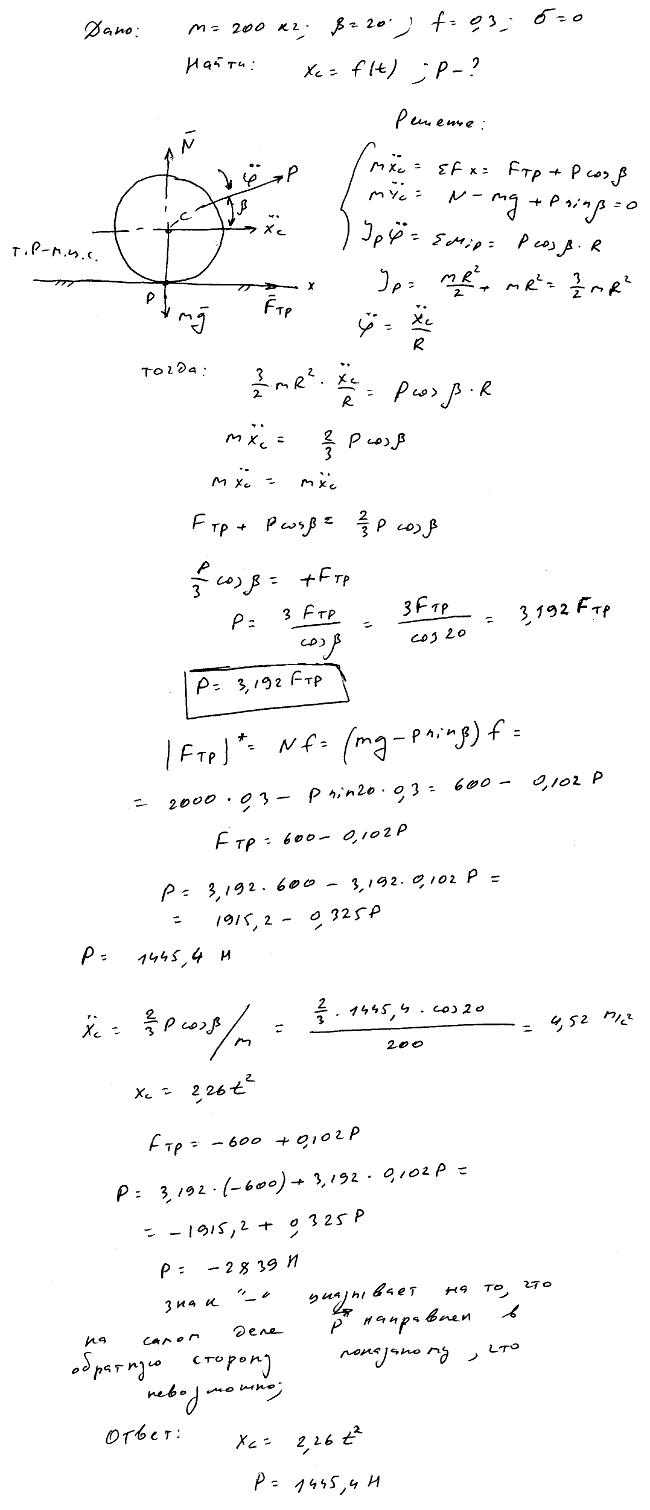 Дано: m = 200 кг; β = 20°; f = 0,3; δ = 0
Найти: x_c = f(t); P - ?
Решение:
N̄
φ̈
P
β
C
ẍ_c
т.P-м.ц.с.
P
mḡ
F̄тр
x
mẍ_c = ΣFx = Fтр + P cosβ
mÿ_c = N - mg + P sinβ = 0
J_p φ̈ = ΣM_ip = P cosβ · R
J_p = mR²/2 + mR² = 3/2 mR²
φ̈ = ẍ_c/R
тогда: 3/2 mR² · ẍ_c/R = P cosβ · R
mẍ_c = 2/3 P cosβ
mẍ_c = mẍ_c
Fтр + P cosβ = 2/3 P cosβ
P/3 cosβ = +Fтр
P = 3Fтр/cosβ = 3Fтр/cos20 = 3,192 Fтр
P = 3,192 Fтр
|Fтр|* = Nf = (mg - P sinβ) f =
= 2000 · 0,3 - P sin20 · 0,3 = 600 - 0,102 P
Fтр = 600 - 0,102P
P = 3,192 · 600 - 3,192 · 0,102 P =
= 1915,2 - 0,325P
P = 1445,4 Н
ẍ_c = 2/3 P cosβ / m = (2/3 · 1445,4 · cos20)/200 = 4,52 м/с²
x_c = 2,26t²
Fтр = -600 + 0,102P
P = 3,192 · (-600) + 3,192 · 0,102P =
= -1915,2 + 0,325P
P = -2839 Н
знак "-" указывает на то, что
на самом деле P̄ направлен в
обратную сторону показаному, что
невозможно;
Ответ: x_c = 2,26 t²
P = 1445,4 Н